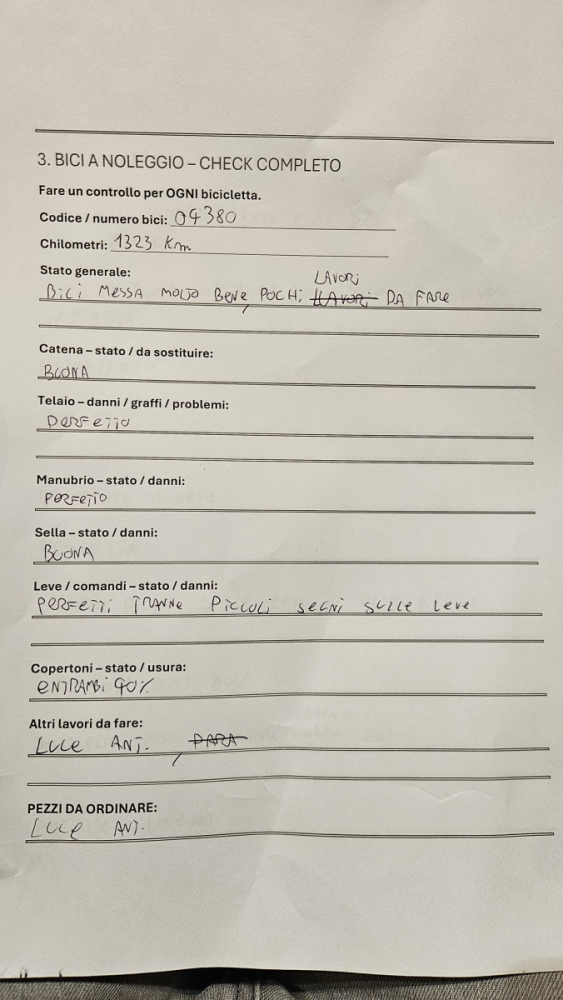 3. BICI A NOLEGGIO – CHECK COMPLETO
Fare un controllo per OGNI bicicletta.
Codice / numero bici: 09380
Chilometri: 1323 Km
Stato generale:
LAVORI
BiCi MESSA MOLTO BENE, POCHI LAVORI DA FARE
Catena – stato / da sostituire:
BUONA
Telaio – danni / graffi / problemi:
PERFETTO
Manubrio – stato / danni:
PERFETTO
Sella – stato / danni:
BUONA
Leve / comandi – stato / danni:
PERFETTI TRANNE PICCOLI SEGNI SULLE LEVE
Copertoni – stato / usura:
ENTRAMBI 90%
Altri lavori da fare:
LUCE ANT. , PARA
PEZZI DA ORDINARE:
LUCE ANT.